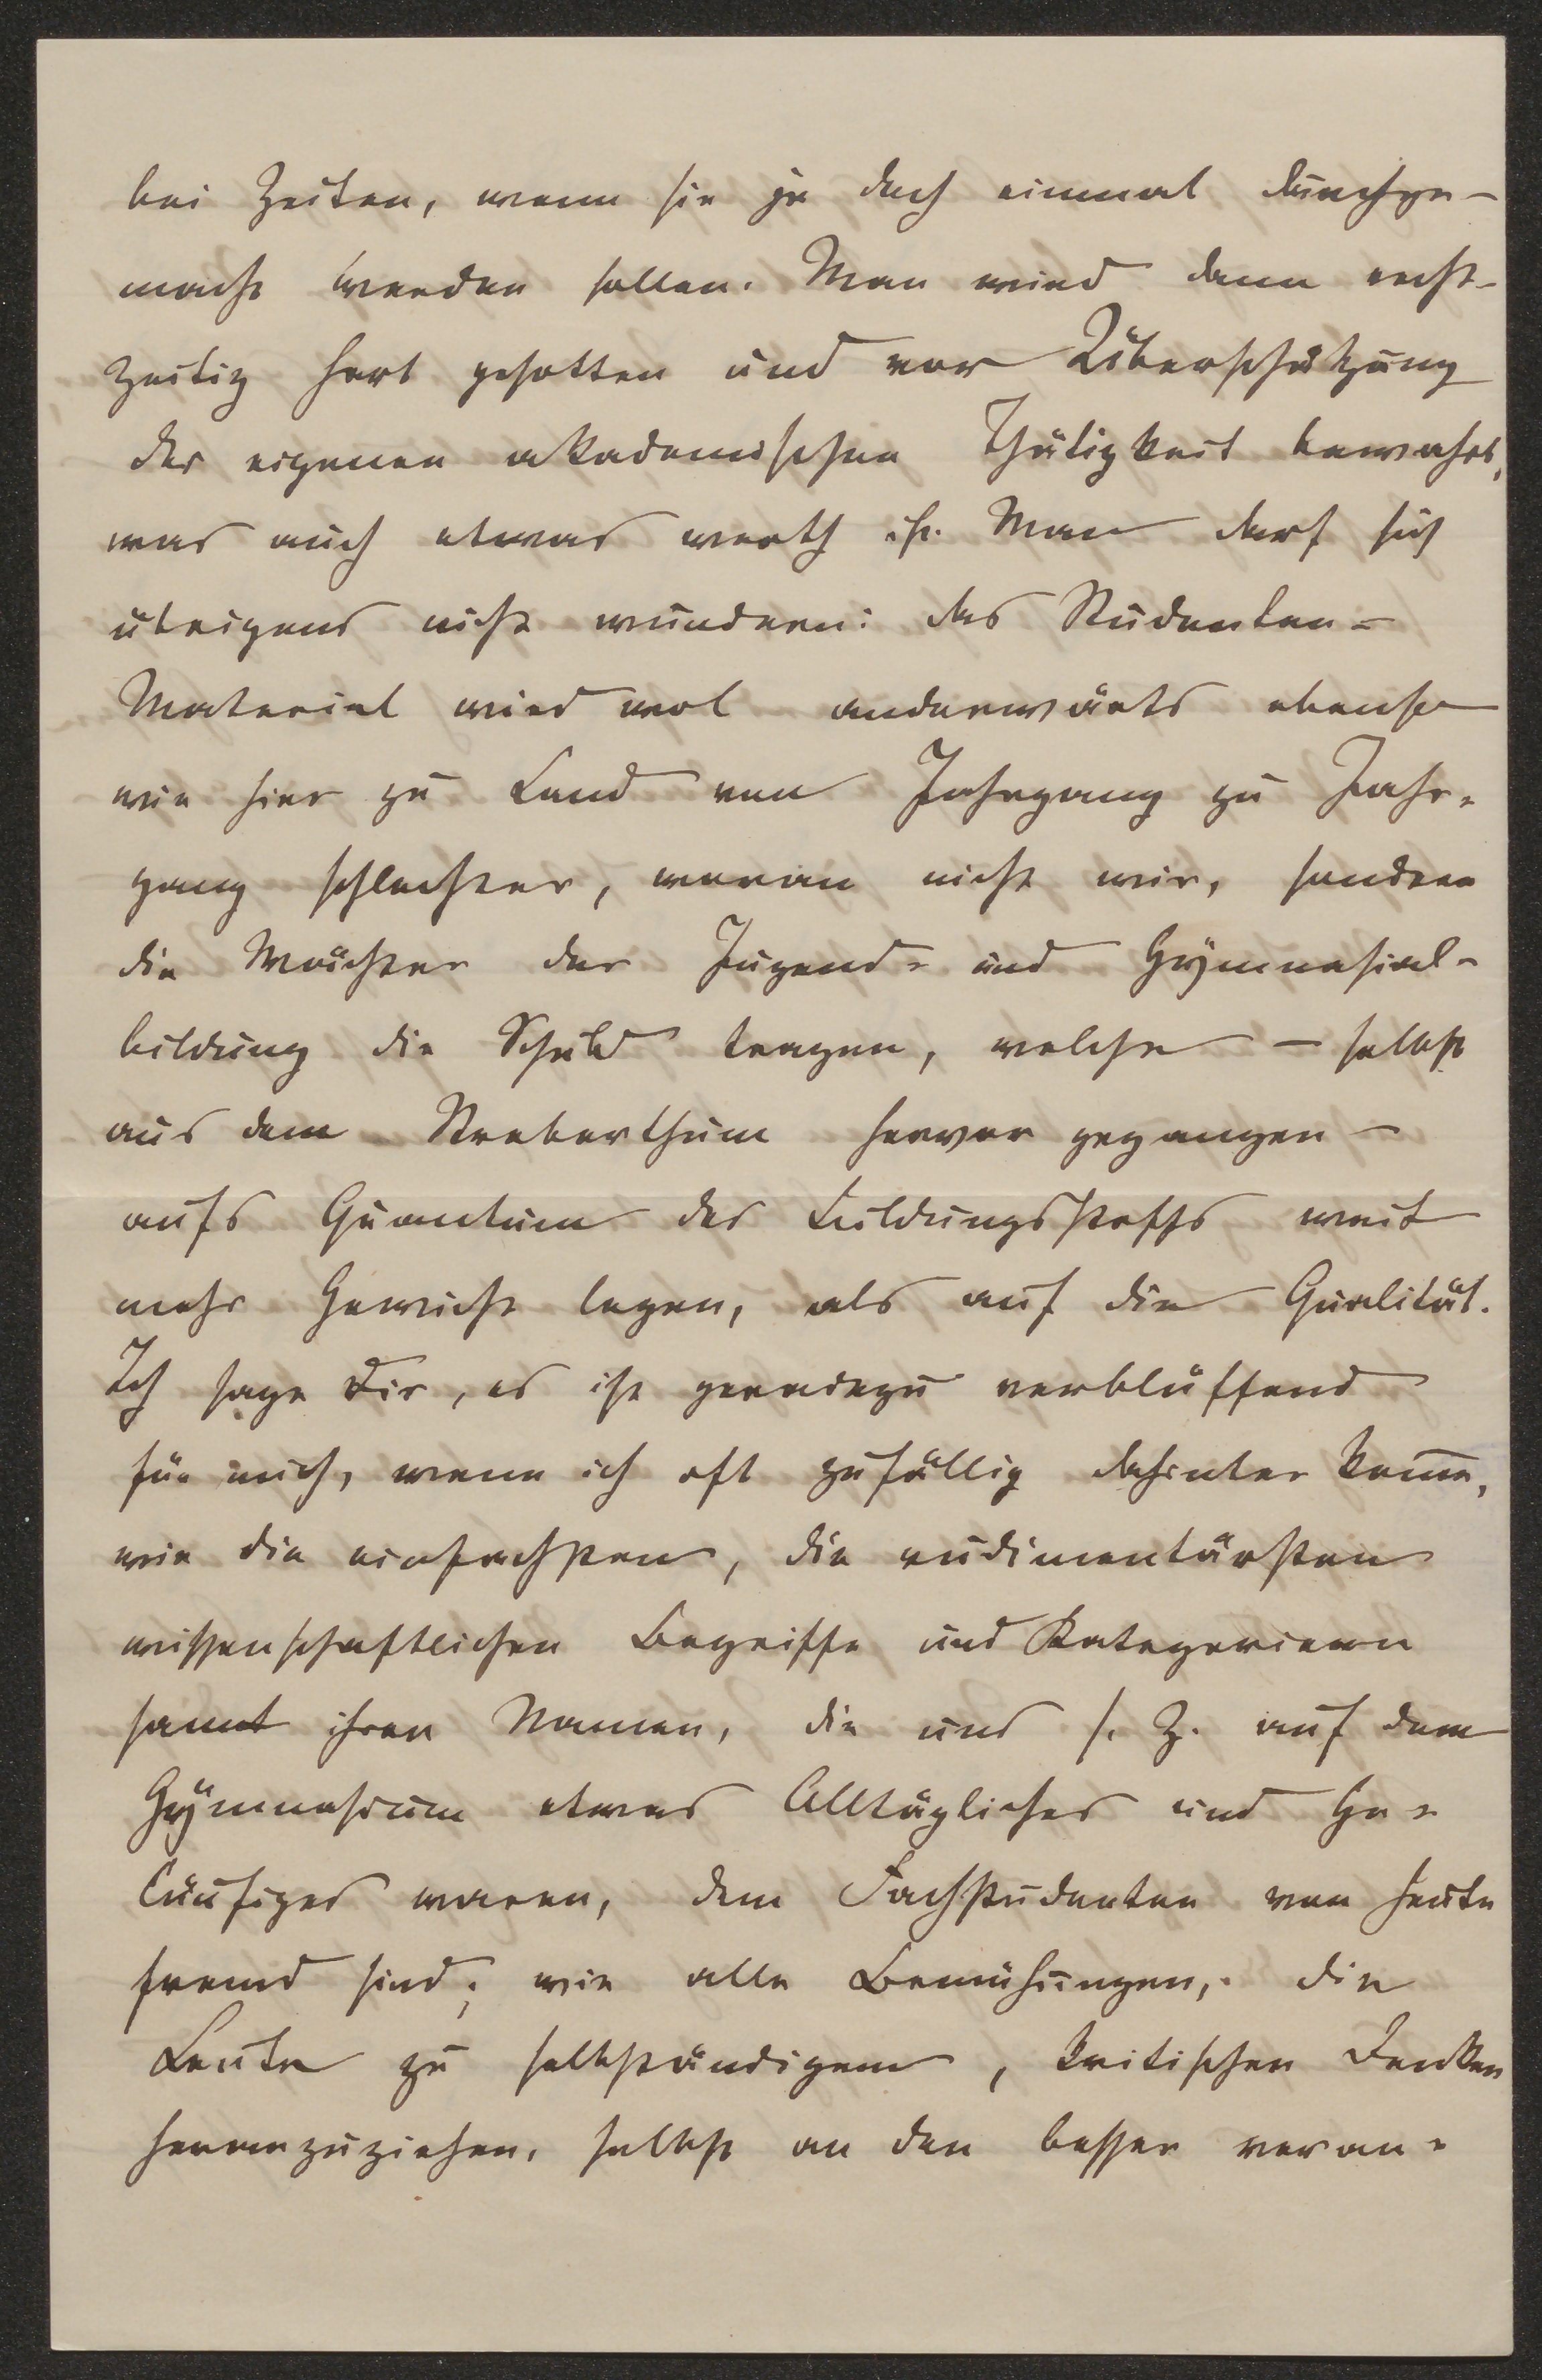 bei Zeiten, wenn sie je doch einmal durchge-
macht werden sollen. Man wird dann recht-
zeitig hart gesotten und vor Überschätzung
der eigenen akademischen Thätigkeit bewahrt,
was auch etwas werth ist. Man darf sich
übrigens nicht wundern: das Studenten-
Material wird wol anderwärts ebenso
wie hier zu Land von Jahrgang zu Jahr-
gang schlechter, woran nicht wir, sondern
die Wächter der Jugend- und Gymnasial-
bildung die Schuld tragen, welche – selbst
aus dem Streberthum hervor gegangen –
aufs Quantum des Bildungsstoffs weit
mehr Gewicht legen, als auf die Qualität.
Ich sage Dir, es ist geradezu verblüffend
für mich, wenn ich oft zufällig dahinter kom̅e,
wie die einfachsten, die rudimentärsten
wissenschaftlichen Begriffe und Kategorieen
sammt ihren Namen, die uns s. Z. auf dem
Gymnasium etwas Alltägliches und Ge-
läufiges waren, dem Fachstudenten von heute
fremd sind; wie alle Bemühungen, die
Leute zu selbständigem, kritischen Denken
heranzuziehen, selbst an den besser veran-